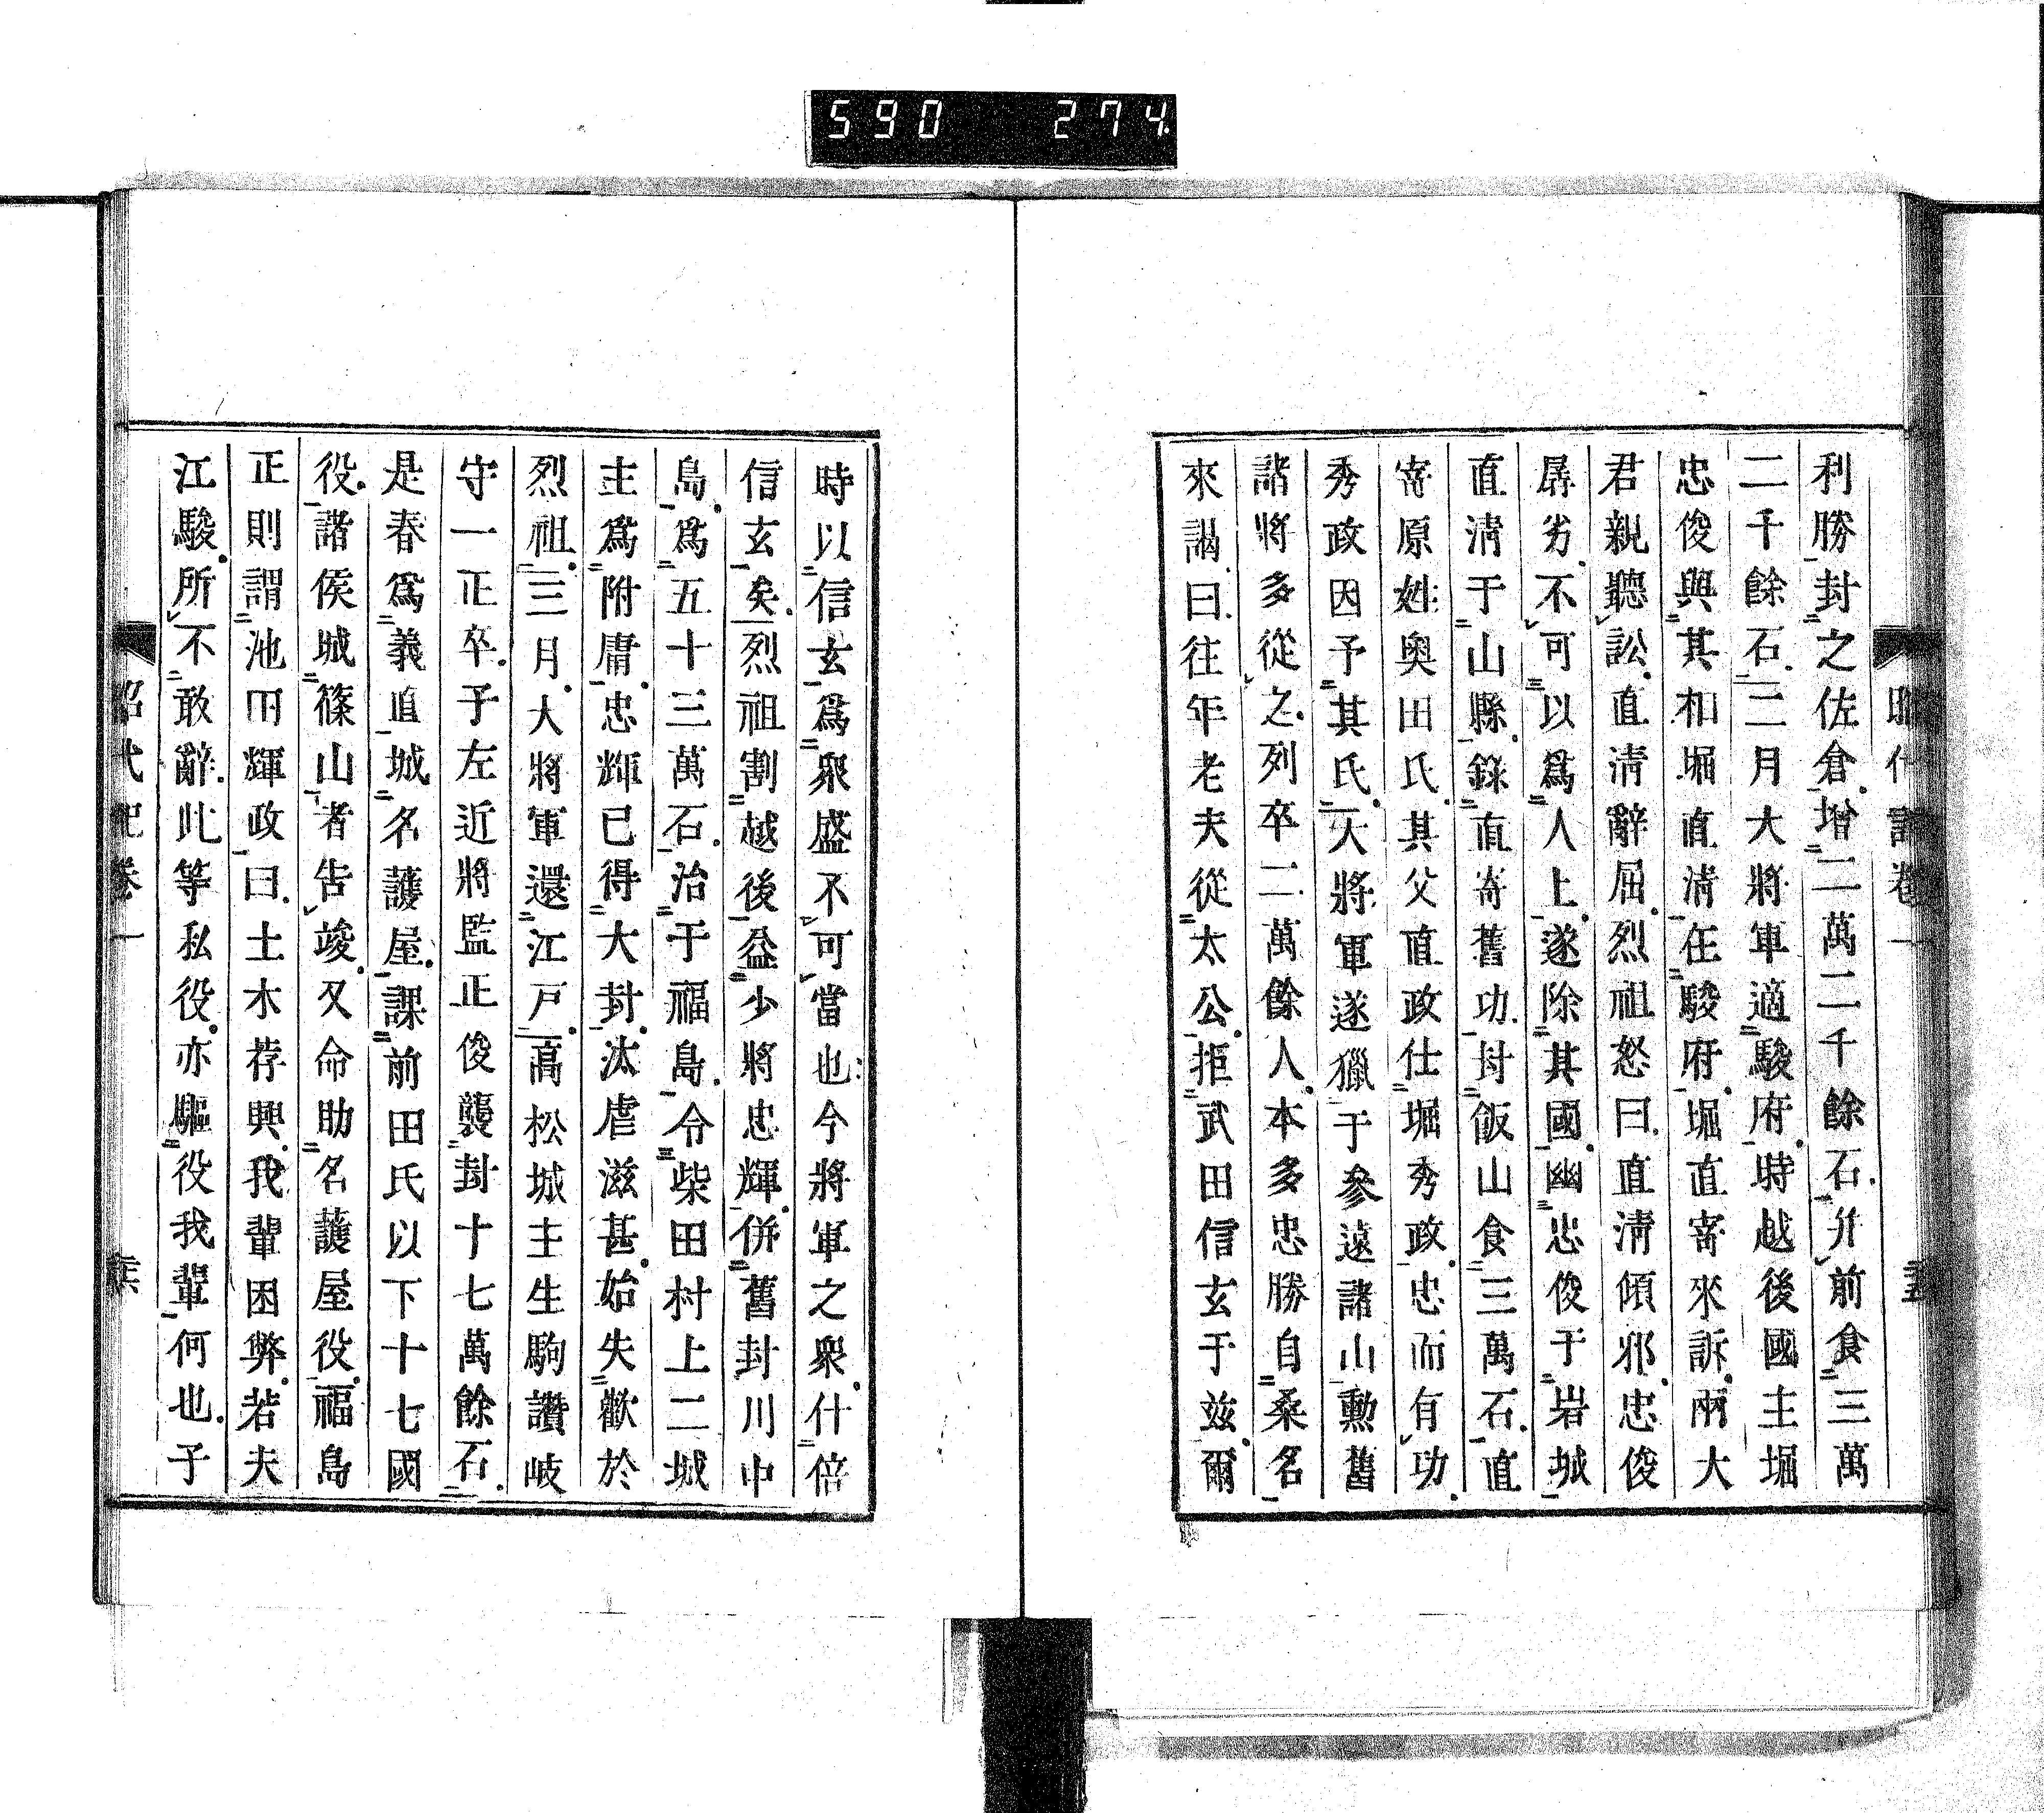 590 274
昭代記卷一
利勝封之佐倉增二萬二千餘石幷前食三萬
二千餘石二月大將軍適駿府時越後國主堀
忠俊與其相堀直淸在駿府堀直寄來訴兩大
君親聽訟直淸辭屈烈祖怒曰直淸傾邪忠俊
孱劣不可以爲人上遂除其國幽忠俊于岩城
直淸于山縣錄直寄舊功封飯山食三萬石直
寄原姓奥田氏其父直政仕堀秀政忠而有功
秀政因予其氏大將軍遂獵于參遠諸山勳舊
諸將多從之列卒二萬餘人本多忠勝自桑名
來謁曰往年老夫從太公拒武田信玄于玆爾
時以信玄爲衆盛不可當也今將軍之衆什倍
信玄矣烈祖割越後益少將忠輝併舊封川中
島爲五十三萬石治于福島令柴田村上二城
主爲附庸忠輝已得大封汰虐滋甚始失歡於
烈祖三月大將軍還江戸高松城主生駒讚岐
守一正卒子左近將監正俊襲封十七萬餘石
是春爲義直城名護屋課前田氏以下十七國
役諸侯城篠山者告竣又命助名護屋役福島
正則謂池田輝政曰土木荐興我輩困弊若夫
江駿所不敢辭此等私役亦驅役我輩何也子
昭代記卷一